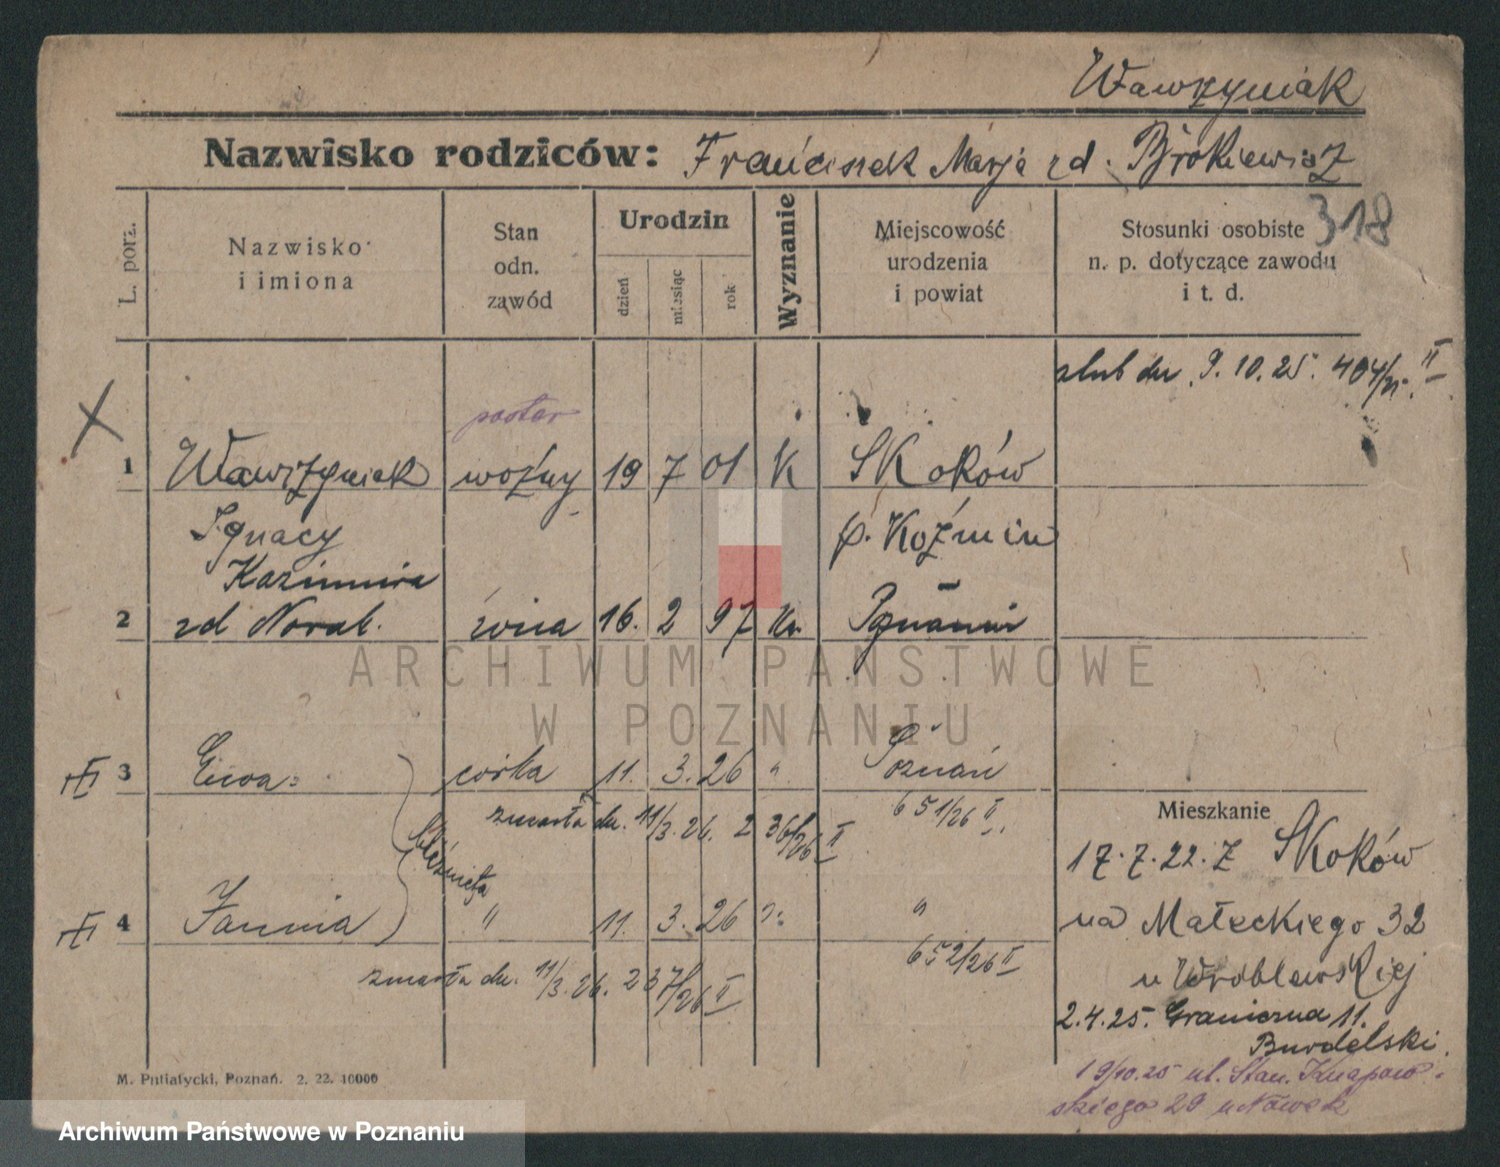 Wawrzyniak
Nazwisko rodziców: Franciszek Marja zd. Brokiewicz
318
L. porz.
Nazwisko i imiona
Stan odn. zawód
Urodzin
dzień
miesiąc
rok
Wyznanie
Miejscowość urodzenia i powiat
Stosunki osobiste n. p. dotyczące zawodu i t. d.
ślub dn. 9.10.25. 404/25. II
X
1 Wawrzyniak woźny 19 7 01 K Skoków
Ignacy p. Koźmin
Kazimiera
2 zd Norab. żona 16. 2 97 K. Poznań
3 Ewa córka 11. 3. 26 " Poznań
zmarła dn. 11/3. 26. 236/26 II 651/26 II
bliźnięta
4 Janina " 11. 3. 26 " "
zmarła dn. 11/3. 26. 237/26 II 652/26 II
Mieszkanie
17.7.22. z Skoków
na Małeckiego 32
u Wróblewskiej
2.4.25. Graniczna 11.
Burdelski.
19/10.25 ul. Stan. Knapow-
skiego 29 u Nowak
M. Putiatycki, Poznań. 2. 22. 10000
ARCHIWUM PAŃSTWOWE
W POZNANIU
Archiwum Państwowe w Poznaniu